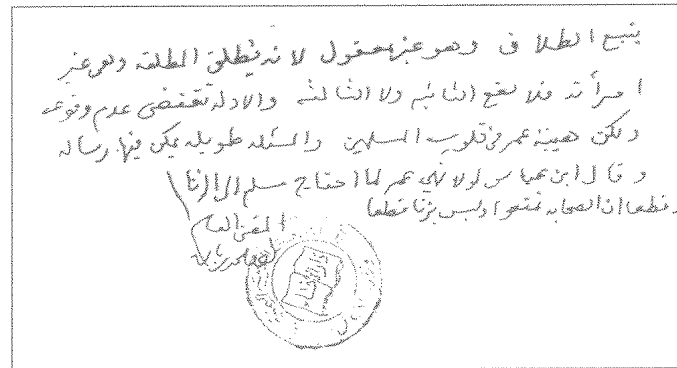 يتبع الطلاق وهو غير معقول لانه يطلق المطلقه وهي غير
امرأته فلا تقع الثانيه ولا الثالثه والادله تقتضي عدم وقوعه
ولكن هيبة عمر في قلوب المسلمين والمسئله طويله يمكن فيها رساله
وقال ابن عباس لولا نهي عمر لما احتاج مسلم الى الزنا
وقطعا ان الصحابه تمتعوا وليس بزنا قطعا
المفتي العام